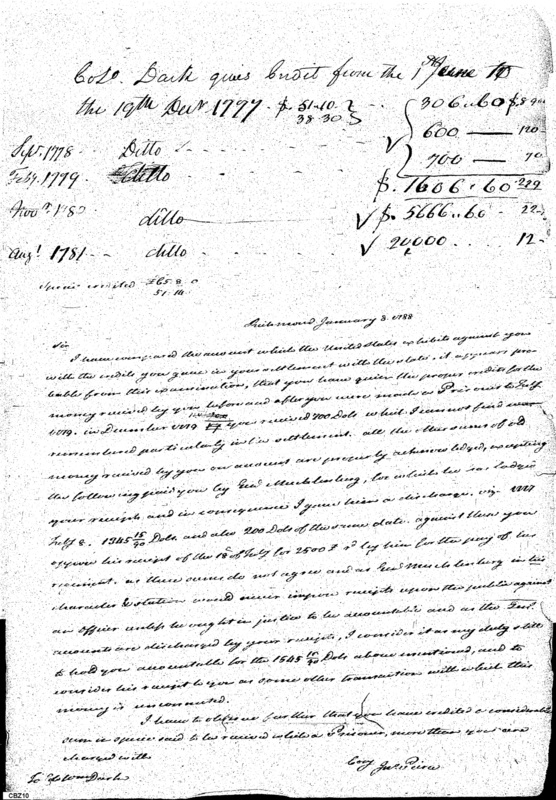 Colo. Dark gives Credit from the 1st June to
the 19th Decr. 1777 - $ 51.10 306..60
38.30 600 — 120
Sept. 1778 - Ditto 700 — 70
Feby. 1779 ditto $. 1606..60
ditto $. 5666..60
Augt. 1781 - ditto 20,000 12
Specie credited
51.14
Richmond January 3. 1788
Sir
I have compared the account which the United States exhibits against you
with the credits you gave in your settlement with the state, it appears pro-
bable from this examination, that you have given the proper credits for the
money received by you before and after you were made a Prisoner
in December you received 700 Dols which I cannot find
remembered particularly in the settlement. all the other sums of old
money received by you on account are properly acknowledged, excepting
the following paid you by Genl Muchlenberg, for which he has lodged
your receipts and in consequence I gave him a discharge. viz. 1777
July 8. 1345 15/90 Dols. and also 200 Dols of the same date. against these you
oppose his receipt of the 18th of July for 2500 Ds by him for the pay of his
regiment. as these sums do not agree and as Genl Muchlenberg in his
character & station would never impose receipts upon the public against
an officer unless he ought in justice to be accountable and as the
accounts are discharged by your receipts, I consider it as my duty still
to hold you accountable for the 1545 15/90 Dols above mentioned, and to
consider his receipt to you as some other transaction with which this
money is unconnected.
I have to observe further that you have credited a considerable
sum in specie said to be received while a Prisoner, more than you are
charged with.
Copy Jno. Peirce
To Colo Wm Dark
CBZ10